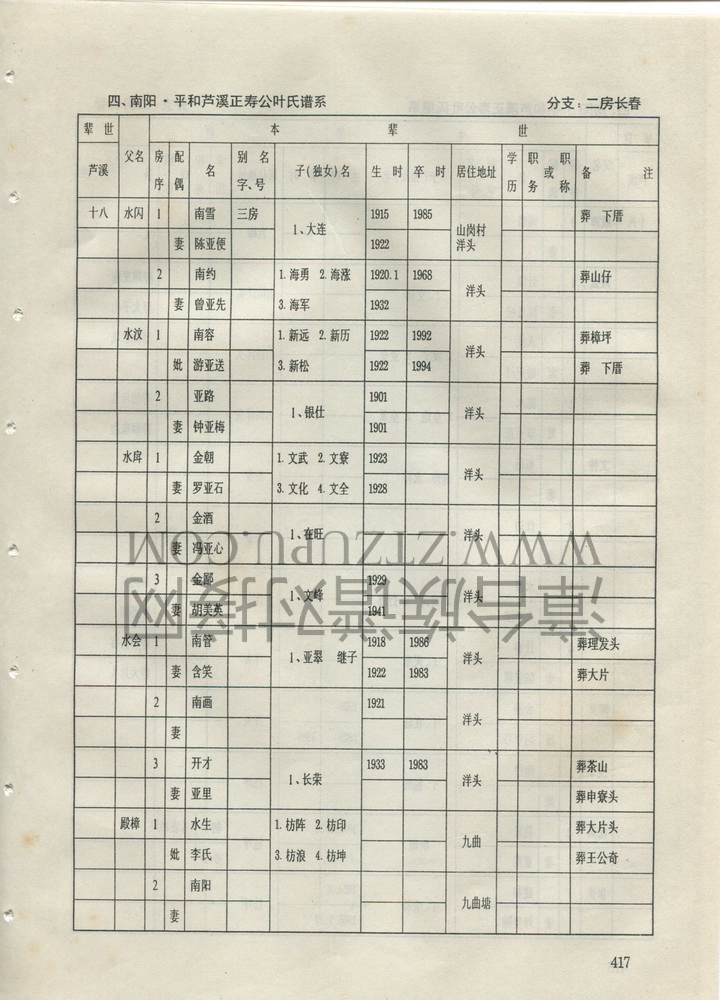 四、南阳·平和芦溪正寿公叶氏谱系 分支：二房长春
辈世 本辈世
芦溪 父名 房序 配偶 名 别名字、号 子(独女)名 生时 卒时 居住地址 学历 职务或职称 备注
十八 水闪 1 南雪 三房 1、大连 1915 1985 山岗村洋头 葬 下厝
妻 陈亚便 1922
2 南约 1.海勇 2.海涨 1920.1 1968 洋头 葬山仔
妻 曾亚先 3.海军 1932
水汶 1 南容 1.新远 2.新历 1922 1992 洋头 葬樟坪
妣 游亚送 3.新松 1922 1994 葬 下厝
2 亚路 1、银仕 1901 洋头
妻 钟亚梅 1901
1 金朝 1.文武 2.文寮 1923 洋头
妻 罗亚石 3.文化 4.文全 1928
2 金酒 1、在旺 洋头
妻 冯亚心
3 1、文峰 1929 洋头
妻 胡美英 1941
水会 1 南管 1、亚翠 继子 1918 1986 洋头 葬理发头
妻 含笑 1922 1983 葬大片
2 南画 1921 洋头
妻
3 开才 1、长荣 1933 1983 洋头 葬茶山
妻 亚里 葬申寮头
殿樟 1 水生 1.枋阵 2.枋印 九曲 葬大片头
妣 李氏 3.枋浪 4.枋坤 葬王公奇
2 南阳 九曲塘
妻
WWW.ZTZUPU.COM
漳台族谱对接网
417